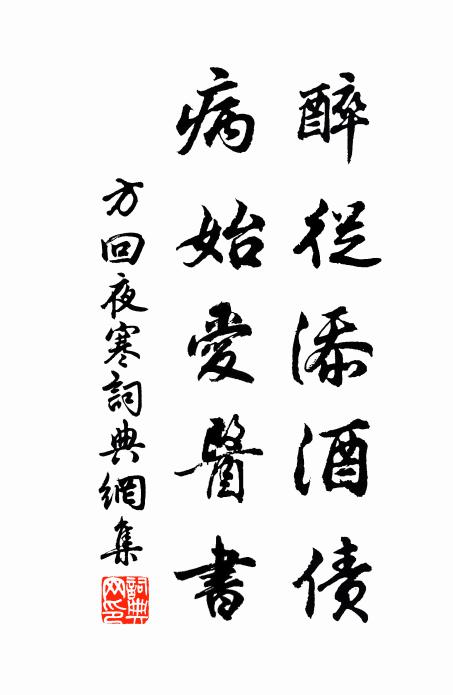 醉從添酒債
病始愛醫書
方回夜寒詞典網集
詞典網印